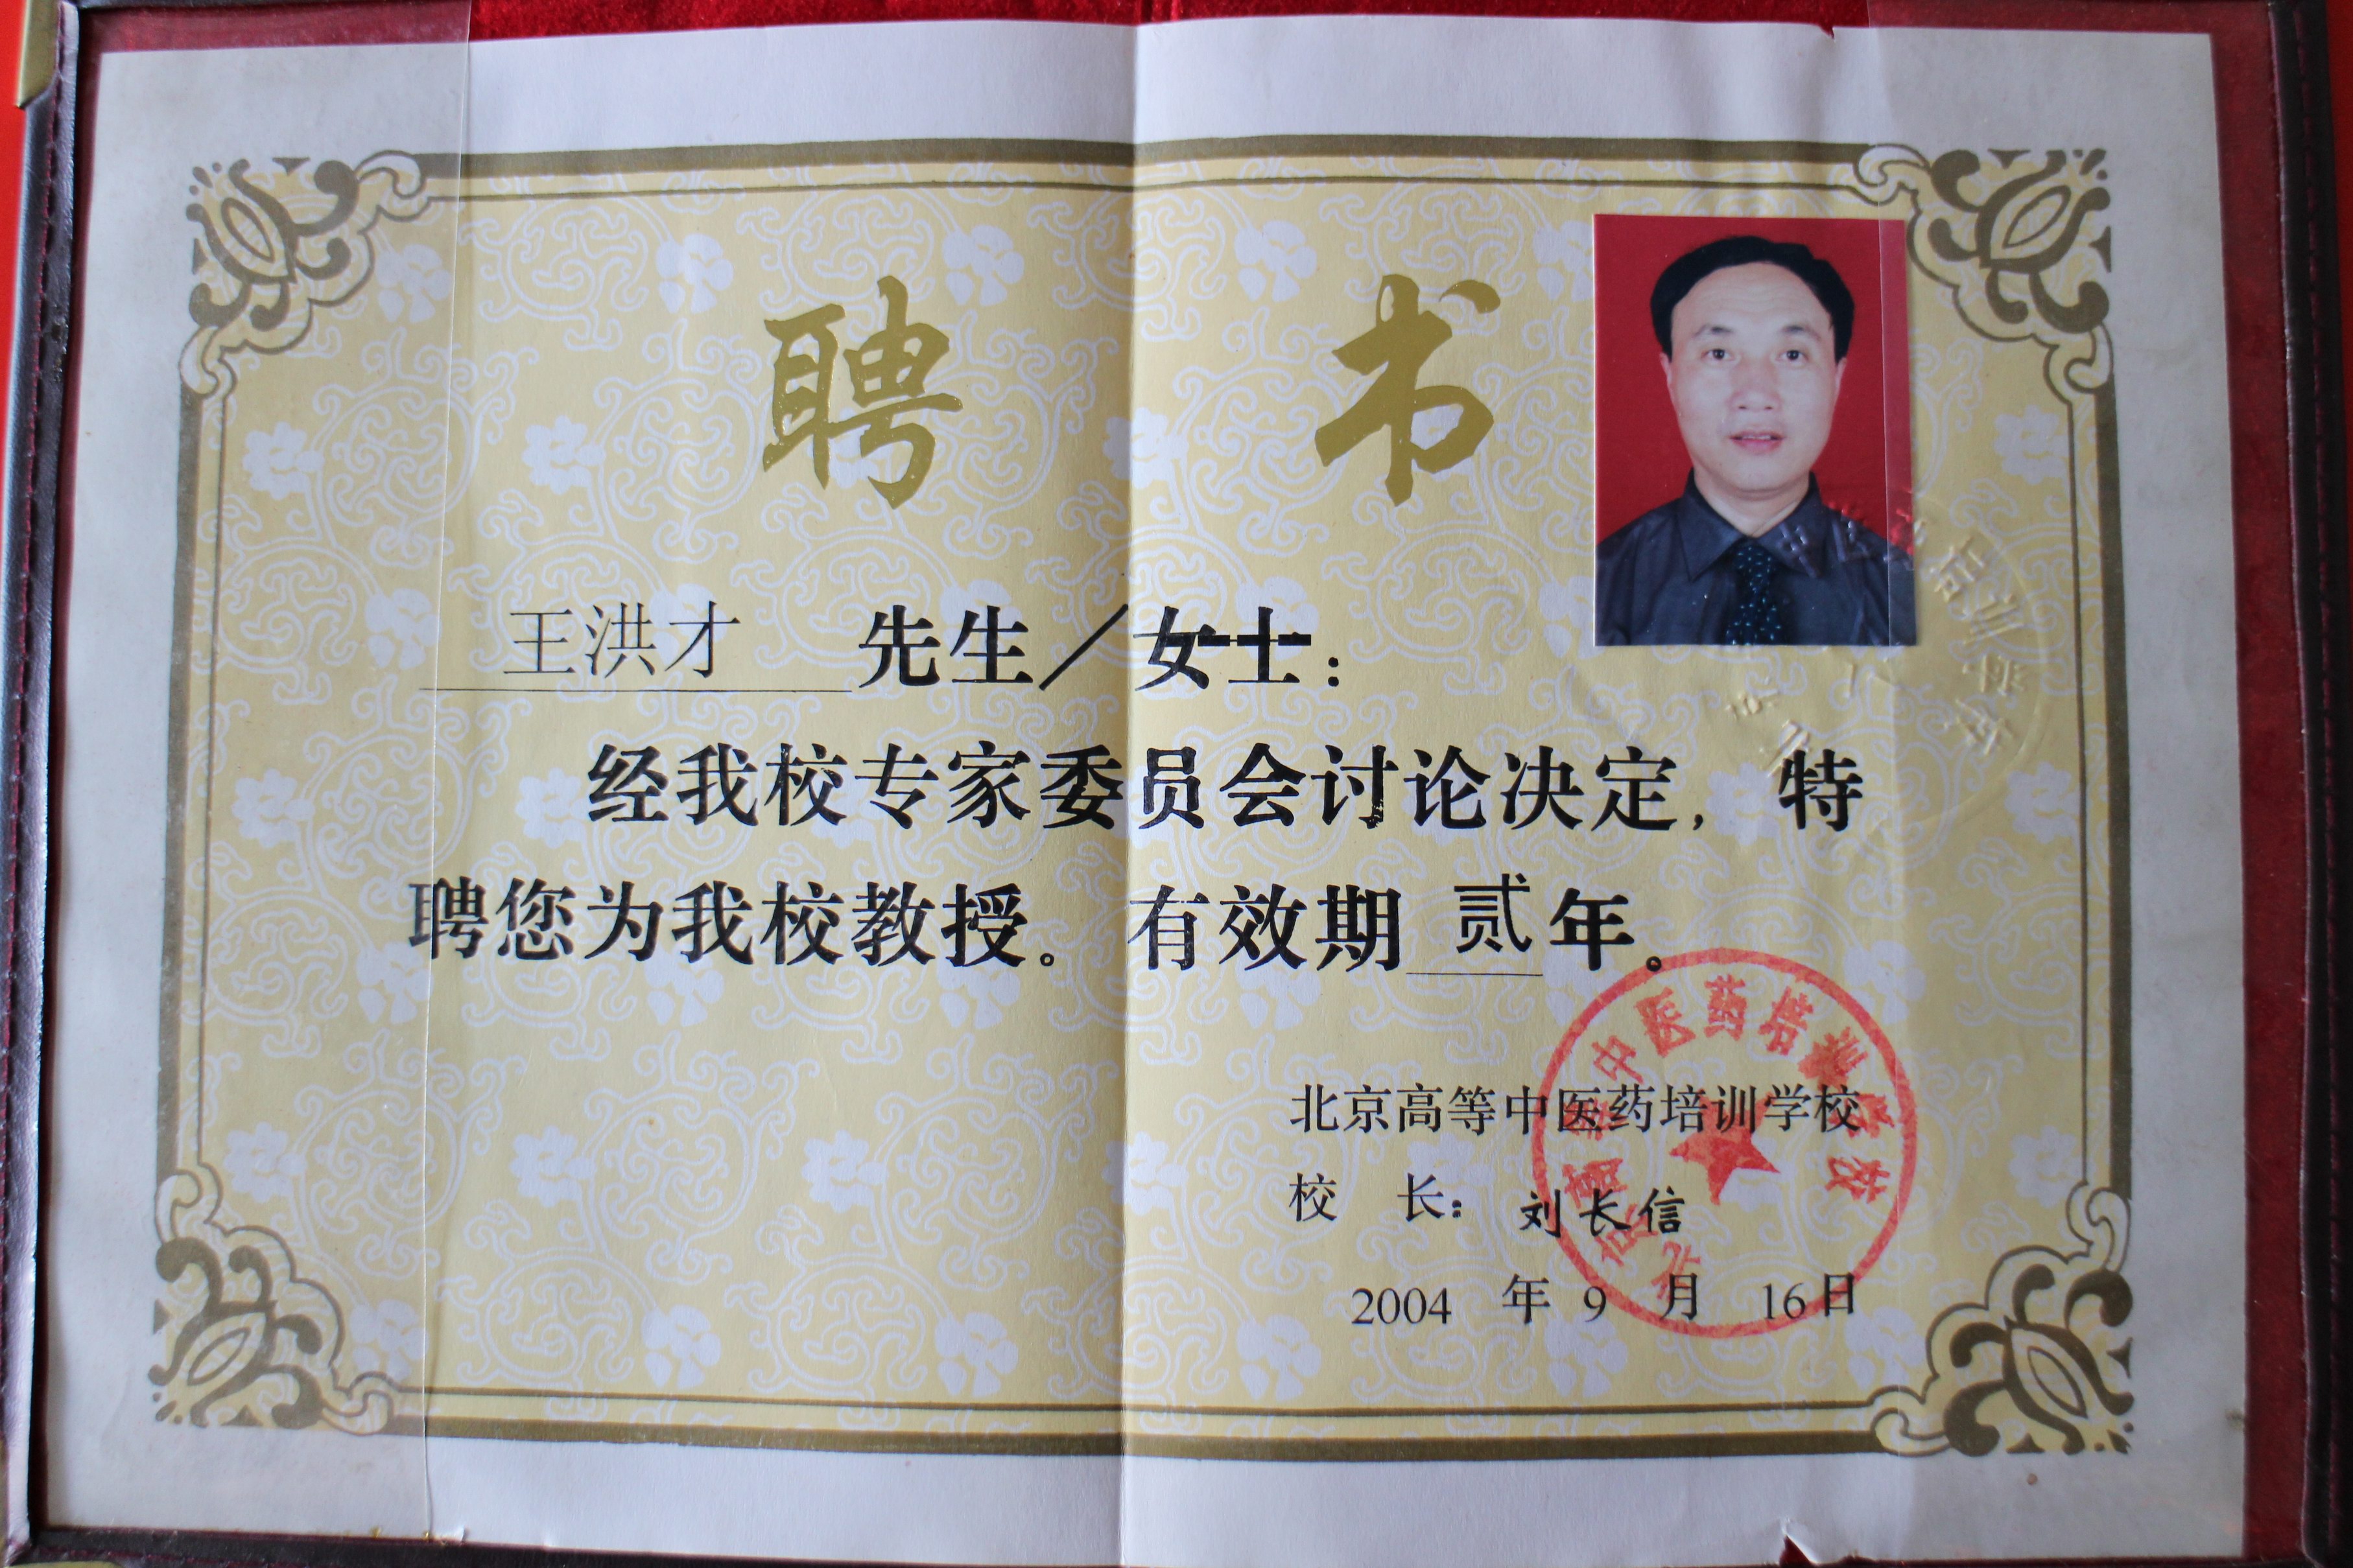 聘书
王洪才 先生／女士：
经我校专家委员会讨论决定，特
聘您为我校教授。有效期 贰 年。
北京高等中医药培训学校
校 长：刘长信
2004 年 9 月 16 日
北京高等中医药培训学校